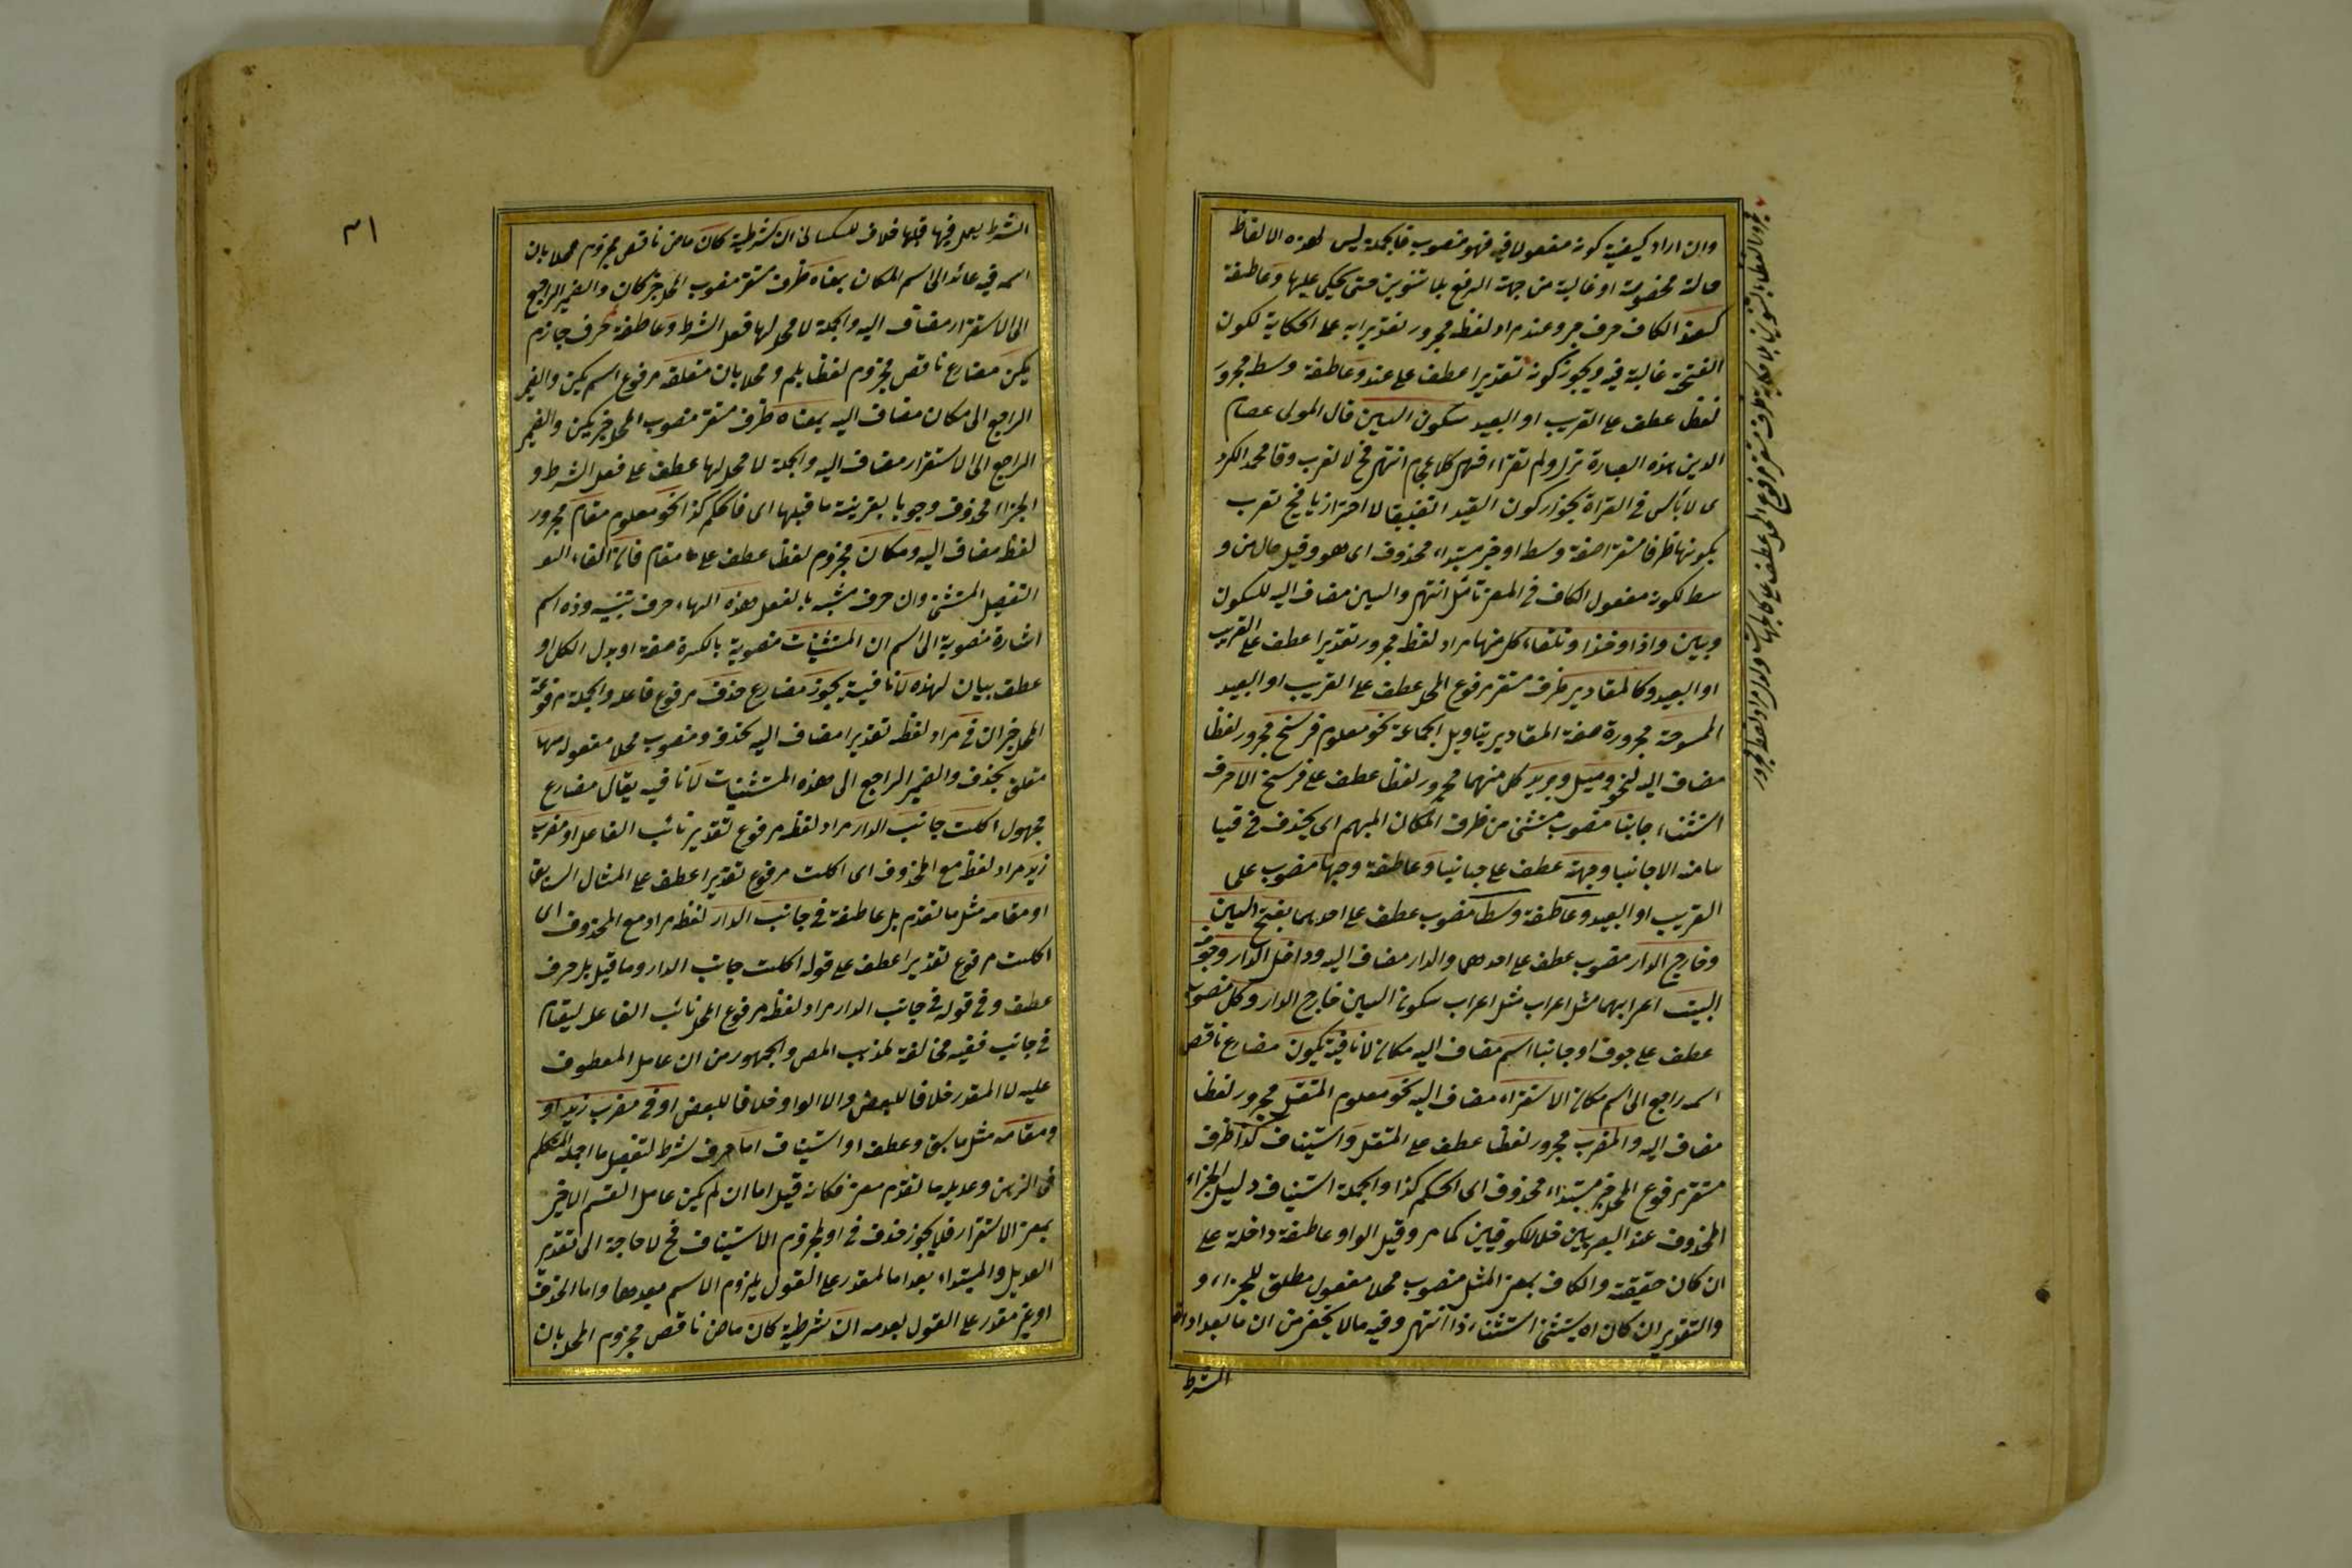 وان اراد كيفية كونه مفعولا فيه فهو منصوب فالجملة ليس لهذه الالفاظ
حالة مخصوصة او غالبة من جهة الرفع بلا تنوين حتى يحكى عليها وعاطفة
كعند الكاف حرف جر وعند مراد لفظه مجرور تقديرا به على الحكاية لكون
الفتحة غالبة فيه ويجوز كونه تقديرا عطف على عند وعاطفة وسط مجرور
لفظا عطف على القريب او البعيد بسكون السين قال المولى عصام
الدين هذه العبارة ولم تقراء انتهى فح لا تعرب محمد الكرد
ى لا بأس فى القراة بجواز كون القيد لا احترازيا فح تعرب
بكونها ظرفا مستقرا صفة وسط او خبر مبتداء محذوف اى هو وقيل حال من و
سط لكونه مفعول الكاف فى المعنى تأمل انتهى والسين مضاف اليه للسكون
وبين وازاء وحذاء وتلقاء كل منها مراد لفظه مجرور تقديرا عطف على القريب
او البعيد وكالمقادير ظرف مستقر مرفوع المحل عطف على القريب او البعيد
الممسوحة مجرورة صفة المقادير بتأويل الجماعة نحو معلوم فرسخ مجرور لفظا
مضاف اليه لنحو وميل وبريد كل منهما مجرور لفظا عطف على فرسخ الا حرف
استثناء جانبا منصوب مستثنى من ظرف المكان المبهم اى يحذف فى قيا
سا منه الا جانبا وجهة عطف على جانبا وعاطفة وجها منصوب على
القريب او البعيد وعاطفة وسط منصوب عطف على احديهما بفتح السين
وخارج الدار منصوب عطف على احدهما والدار مضاف اليه وداخل الدار وجوف
البيت اعرابهما مثل اعراب مثل اعراب سكون السين خارج الدار وكل منصوب
عطف على جوف او جانبا اسم مضاف اليه مكان لا نافية يكون مضارع ناقص
اسمه راجع الى اسم مكان الاستقراء مضاف اليه نحو معلوم المقتل مجرور لفظا
مضاف اليه والمضرب مجرور لفظا عطف على المقتل واستيناف كذا ظرف
مستقر مرفوع المحل خبر مبتداء محذوف اى الحكم كذا والجملة استيناف دليل الجزاء
المحذوف عند البصريين خلافا للكوفيين كما مر وقيل الواو عاطفة داخلة على
ان كان حقيقة والكاف بمعنى المثل منصوب محلا مفعول مطلق للجزاء و
والتقدير ان كان اه يستثنى استثناء ذا انتهى وفيه ما لا يخفى من ان ما بعد ادات
الشرط
٣١
الشرط يعمل فيها قبلها خلاف للكسائى ان شرطية كان ماض ناقص مجزوم محلا بان
اسمه فيه عائد الى اسم المكان بمعناه ظرف مستقر منصوب المحل خبر كان والضمير الراجع
الى الاستقرار مضاف اليه والجملة لا محل لها فعل الشرط وعاطفة لم حرف جازم
يكن مضارع ناقص مجزوم لفظا بلم ومحلا بان متعلقه مرفوع اسم يكن والضمير
الراجع الى مكان مضاف اليه بمعناه ظرف مستقر منصوب المحل خبر يكن والضمير
الراجع الى الاستقرار مضاف اليه والجملة لا محل لها عطف على فعل الشرط و
الجزاء محذوف وجوبا بقرينة ما قبلها اى فالحكم كذا نحو معلوم مقام مجرور
لفظا مضاف اليه ومكان مجزوم لفظا عطف على مقام فان الفاء
التفصيل وان حرف مشبه بالفعل هذه الهاء حرف تنبيه وذه اسم
اشارة منصوبة الى اسم ان المستثنيات منصوبة بالكسرة صفة او بدل الكل او
عطف بيان لهذه لا نافية يجوز مضارع حذف مرفوع فاعله والجملة مرفوعة
المحل خبر ان فى مراد لفظه تقديرا مضاف اليه لحذف ومنصوب محلا مفعوله منها
متعلق بحذف والضمير الراجع الى هذه المستثنيات لا نافيه يقال مضارع
مجهول اكلت جانب الدار مراد لفظه مرفوع تقدير نائب الفاعل او مضرب
زيد مراد لفظ مع المحذوف اى اكلت مرفوع تقديرا عطف على المثال السابق
او مقامه مثل ما تقدم بل عاطفة فى جانب الدار لفظه مراد مع المحذوف اى
اكلت مرفوع تقديرا عطف على قوله اكلت جانب الدار وما قيل بل حرف
عطف وفى قوله فى جانب الدار مراد لفظه مرفوع المحل نائب الفاعل ليقام
فى جانب ففيه مخالفة لمذهب المص والجمهور من ان عامل المعطوف
عليه لا المقدر خلافا للبعض ولا الواو خلافا للبعض او فى مضرب زيد او
و مقامه مثل ما سبق وعطف او استيناف اما حرف شرط لتفصيل ما اجمله المتكلم
فى الذهن وعديله ما تقدم معنى فكانه قيل اما ان لم يكن عامل القسم الاخير
بمعنى الاستقرار فلا يجوز حذف فى او الاستيناف فح لا حاجة الى تقدير
العديل والمبتداء بعد اما لمقدر على القول بلزوم الاسم بعدها واما المحذوف
او غير مقدر على القول بعدمه ان شرطية كان ماض ناقص مجزوم المحل بان